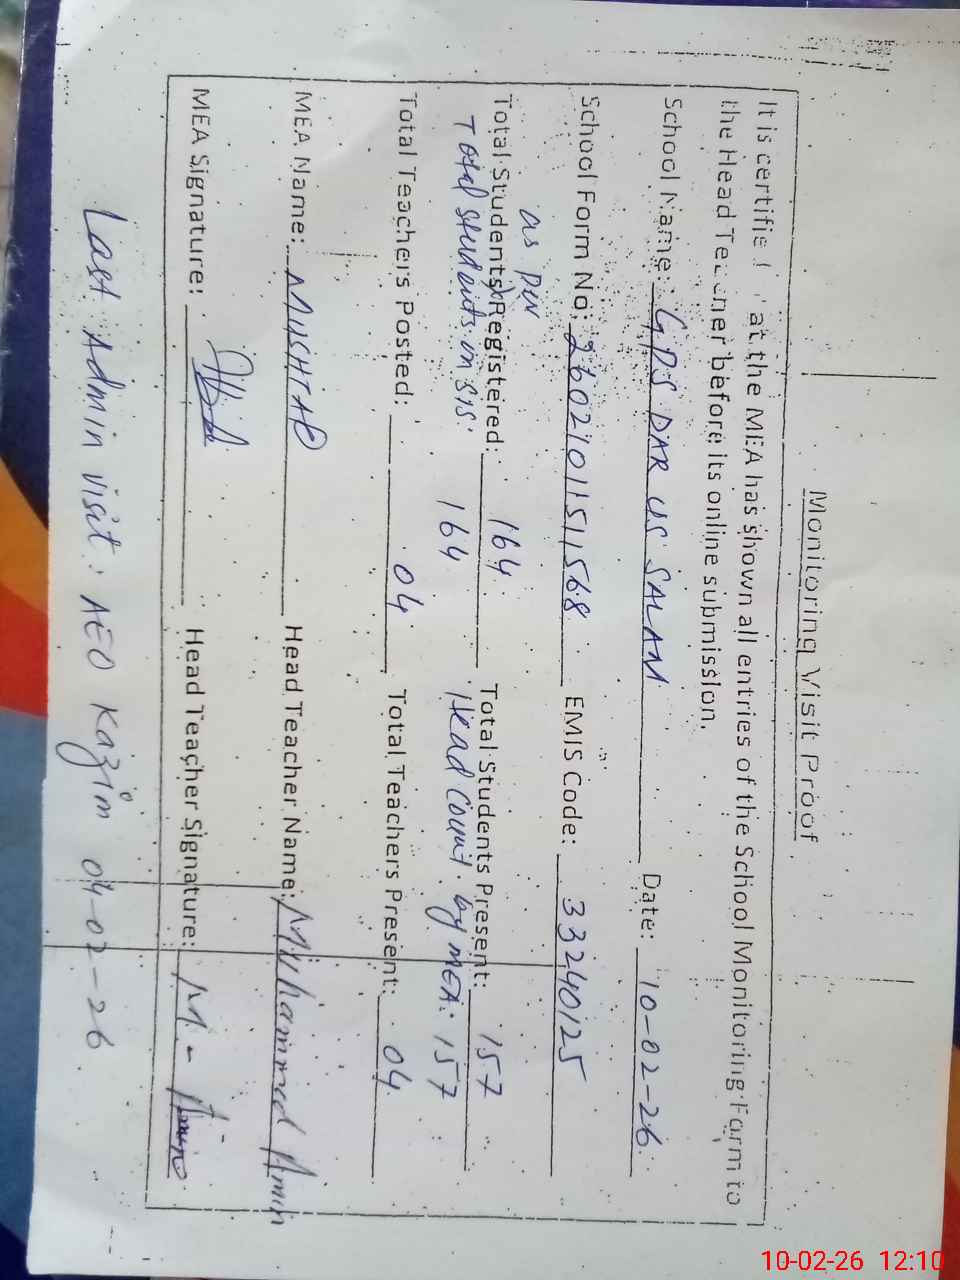 Monitoring Visit Proof
It is certifie at the MEA has shown all entries of the School Monitoring Form to
the Head Teacher before its online submission.
School Name: GPS DAR US SALAM Date: 10-02-26
School Form No: 26021011511568 EMIS Code: 33240125
as per
Total Students Registered: 164 Total Students Present: 157
Total students in SIS: 164 Head Count by MEA: 157
Total Teachers Posted: 04 Total Teachers Present: 04
MEA Name: MUSHTAQ Head Teacher Name: Muhammad Amin
MEA Signature: Head Teacher Signature: M - Amin
Last Admin visit: AEO Kazim 04-02-26
10-02-26 12:10